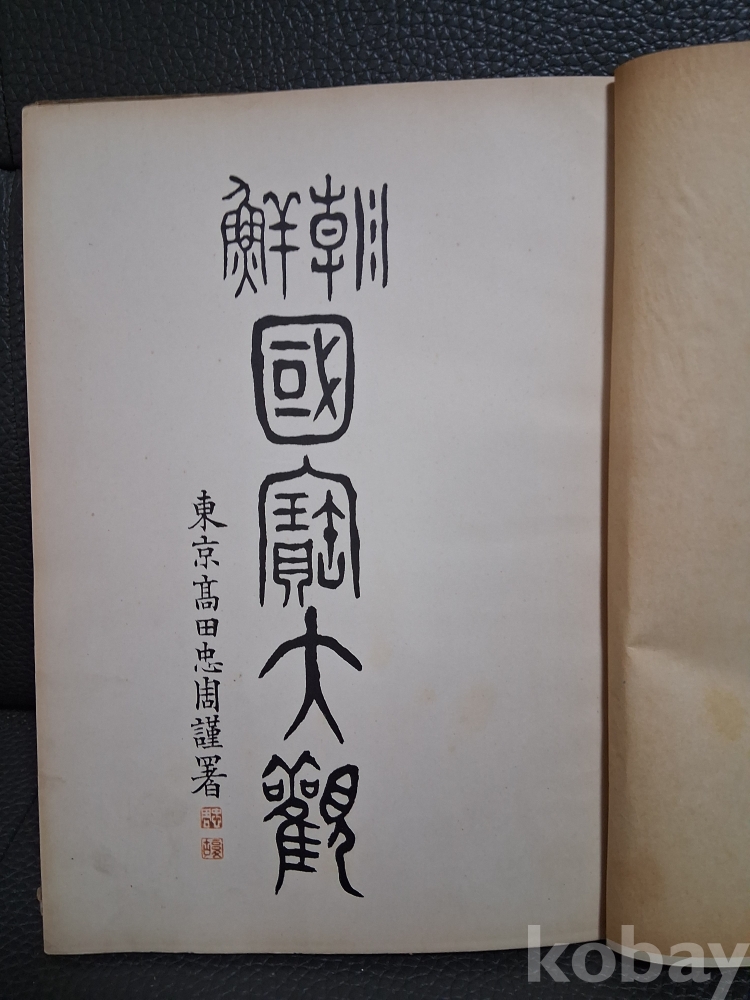 朝鮮
國寶大觀
東京髙田忠周謹署
kobay